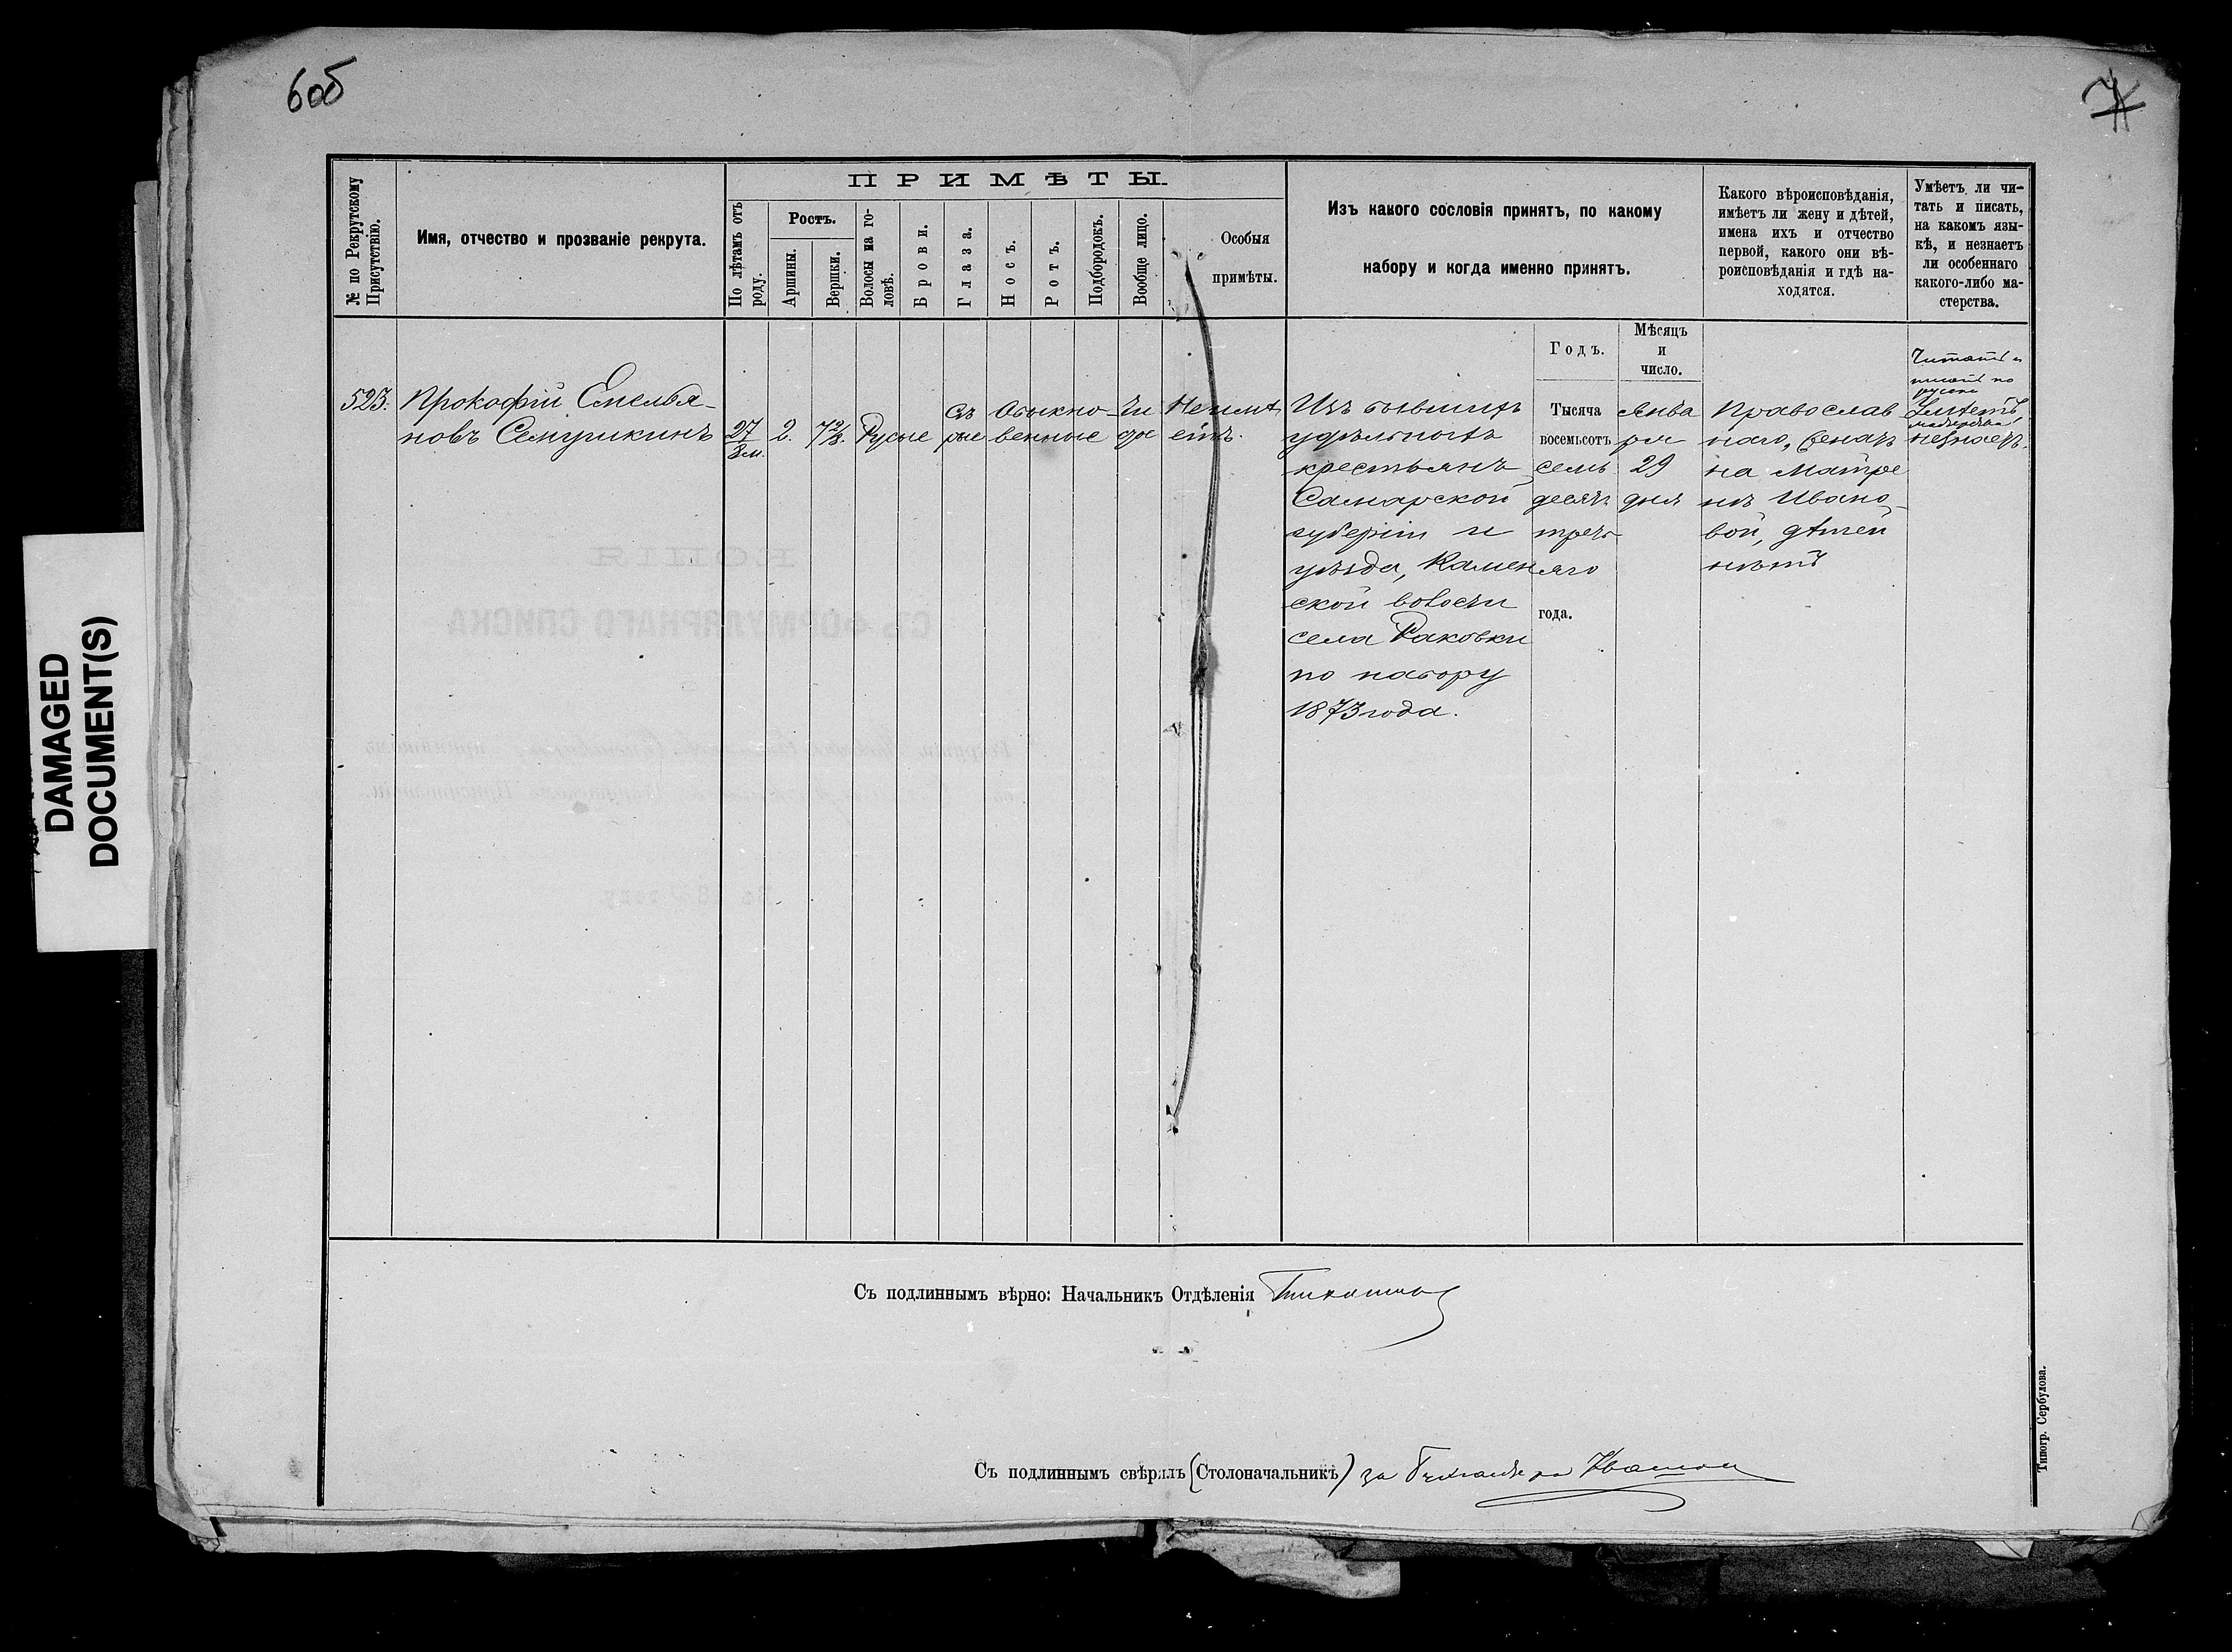 6об
7
DAMAGED
DOCUMENT(S)
№ по Рекрутскому
Присутствію.
Имя, отчество и прозваніе рекрута.
ПРИМѢТЫ.
По лѣтамъ отъ
роду.
Ростъ.
Аршины.
Вершки.
Волосы на го-
ловѣ.
Брови.
Глаза.
Носъ.
Ротъ.
Подбородокъ.
Вообще лицо.
Особыя
примѣты.
Изъ какого сословія принятъ, по какому
набору и когда именно принятъ.
Какого вѣроисповѣданія,
имѣетъ ли жену и дѣтей,
имена ихъ и отчество
первой, какого они вѣ-
роисповѣданія и гдѣ на-
ходятся.
Умѣетъ ли чи-
тать и писать,
на какомъ язы-
кѣ, и незнаетъ
ли особеннаго
какого-либо ма-
стерства.
523.
Прокофій Емелья-
новъ Семушкинъ
27
8 м.
2.
7 2/8.
Русые
Съ
рые
Обыкно-
венные
Чи
дое
Неимѣ
етъ.
Изъ бывшихъ
удѣльныхъ
крестьянъ
Самарской
губерніи и
уѣзда, Камен
ской волости
села Раковки
по набору
1873 года.
Годъ.
Тысяча
восемьсотъ
семь
десятъ
треть
яго
года.
Мѣсяцъ
и
число.
Янва
ря
29
дня
Православ
наго, женатъ
на Матре
нѣ Ивано-
вой, дѣтей
нѣтъ
Читать и
писать по
русски
Умѣетъ,
мастерства
незнаетъ.
Съ подлиннымъ вѣрно: Начальникъ Отдѣленія
Съ подлиннымъ свѣрялъ (Столоначальникъ) за
Типогр. Сербулова.
КОПІЯ
СЪ ФОРМУЛЯРНАГО СПИСКА